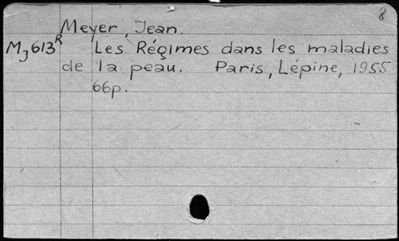 8
Meyer, Jean.
MJ613R Les Régimes dans les maladies
de la peau. Paris, Lépine, 1955
66p.